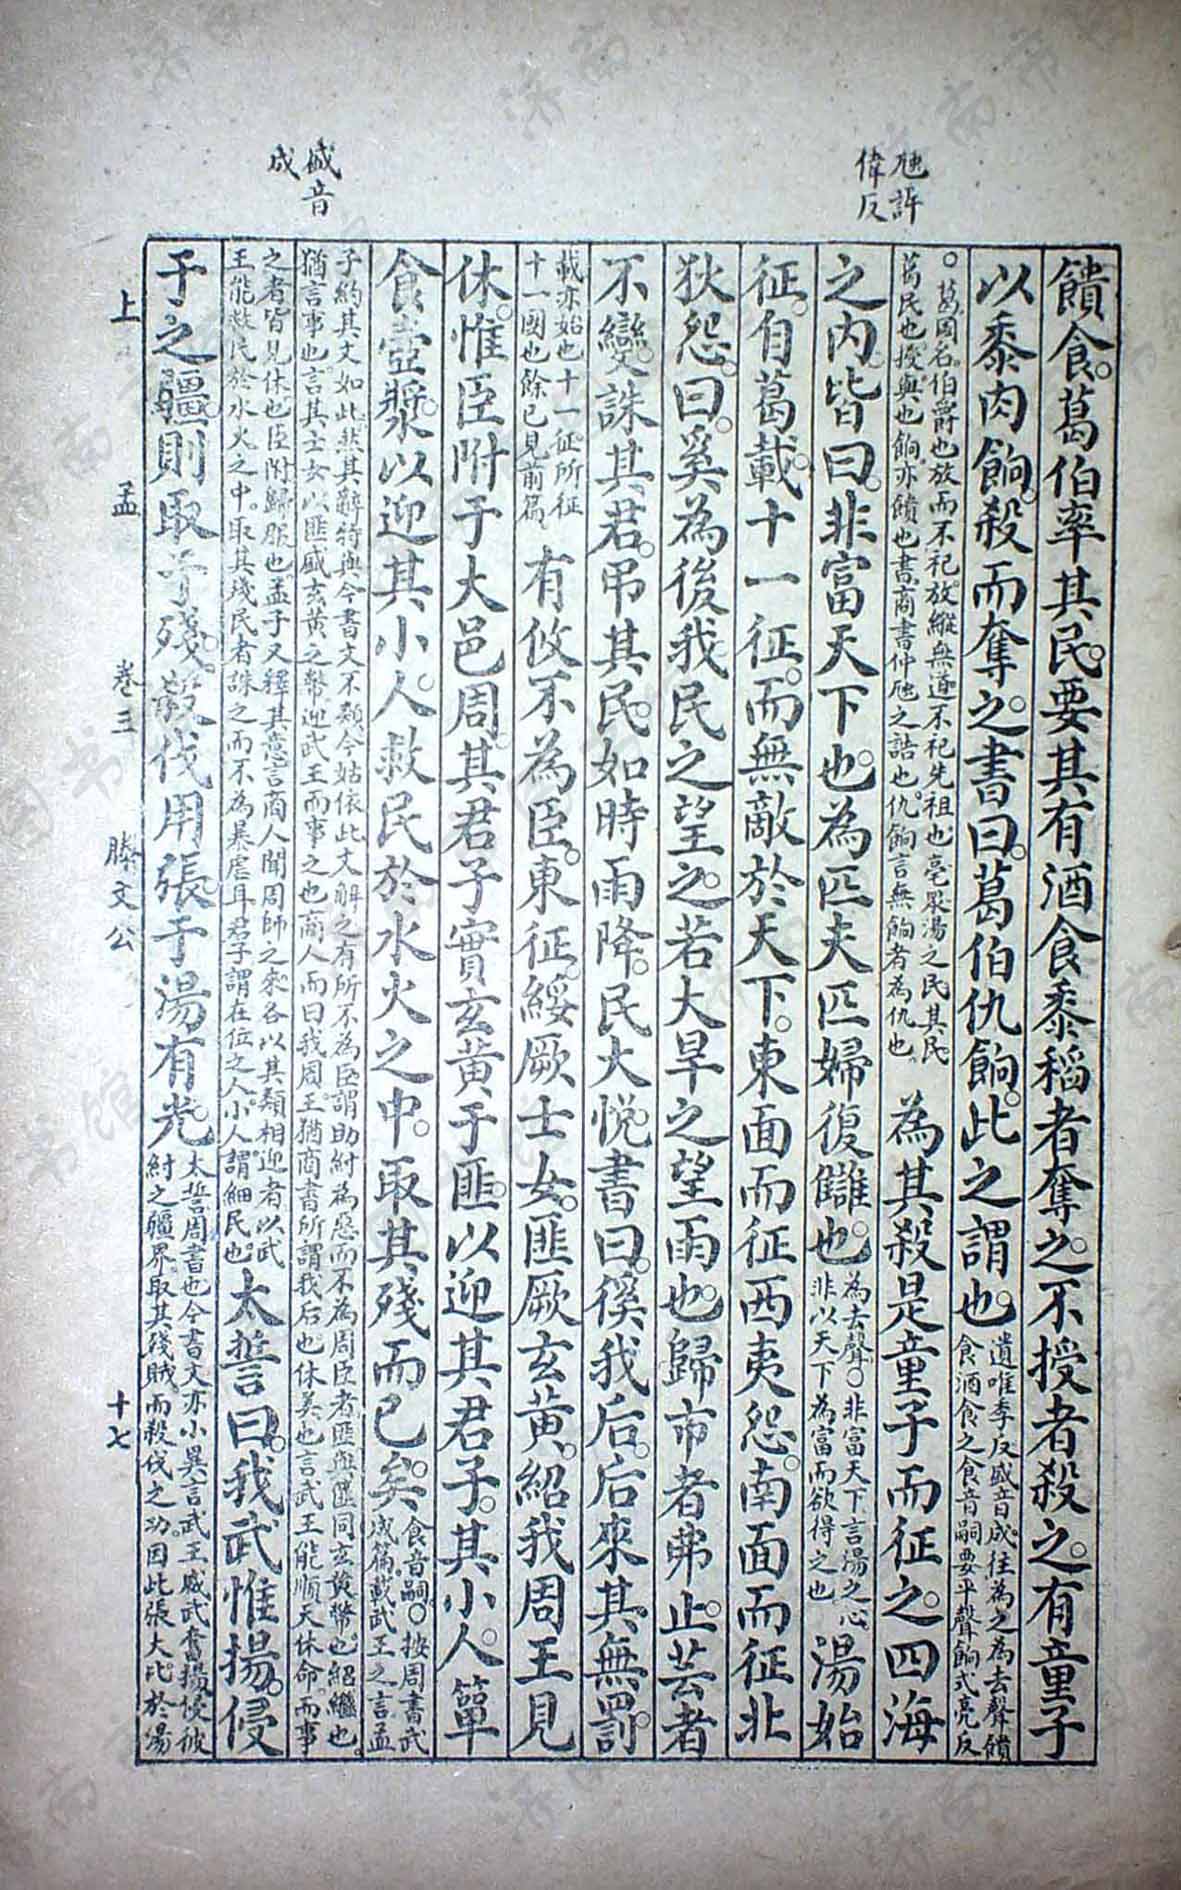 虺許
偉反
盛音
成
饋食葛伯率其民要其有酒食黍稻者奪之不授者殺之有童子
以黍肉餉殺而奪之書曰葛伯仇餉此之謂也
遺唯季反盛音成往為之為去聲饋
食酒食之食音嗣要平聲餉式亮反
○葛國名伯爵也放而不祀放縱無道不祀先祖也亳衆湯之民其民
葛民也授與也餉亦饋也書商書仲虺之誥也仇餉言與餉者為仇也
為其殺是童子而征之四海
之內皆曰非富天下也為匹夫匹婦復讎也
為去聲○非富天下言湯之心
非以天下為富而欲得之也
湯始
征自葛載十一征而無敵於天下東面而征西夷怨南面而征北
狄怨曰奚為後我民之望之若大旱之望雨也歸市者弗止芸者
不變誅其君弔其民如時雨降民大悅書曰徯我后后來其無罰
載亦始也十一征所征
十一國也餘已見前篇
有攸不為臣東征綏厥士女匪厥玄黃紹我周王見
休惟臣附于大邑周其君子實玄黃于匪以迎其君子其小人簞
食壺漿以迎其小人救民於水火之中取其殘而已矣
食音嗣○按周書武
成篇載武王之言孟
子約其文如此然其辭特與今書文不類今姑依此文解之有所不為臣謂助紂為惡而不為周臣者匪與篚同玄黃幣也紹繼也
猶言事也言其士女以匪盛玄黃之幣迎武王而事之也商人而曰我周王猶商書所謂我后也休美也言武王能順天休命而事
之者皆見休也臣附歸服也孟子又釋其意言商人聞周師之來各以其類相迎者以武
王能救民於水火之中取其殘民者誅之而不為暴虐耳君子謂在位之人小人謂細民也
太誓曰我武惟揚侵
于之疆則取于殘殺伐用張于湯有光
太誓周書也今書文亦小異言武王威武奮揚侵彼
紂之疆界取其殘賊而殺伐之功因此張大比於湯
上 孟 卷三 滕文公 十七